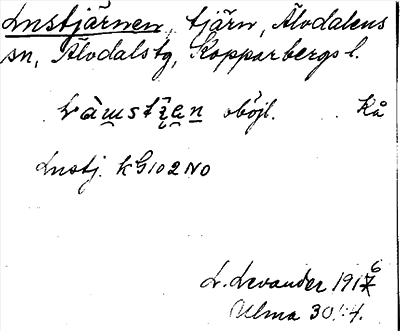 Lustjärnen, tjärn, Älvdalens
sn, Älvdalstg, Kopparbergs l.
oböjl. Kå
Lustj. KG102NO
L. Levander 1916
Ulma 301:4.